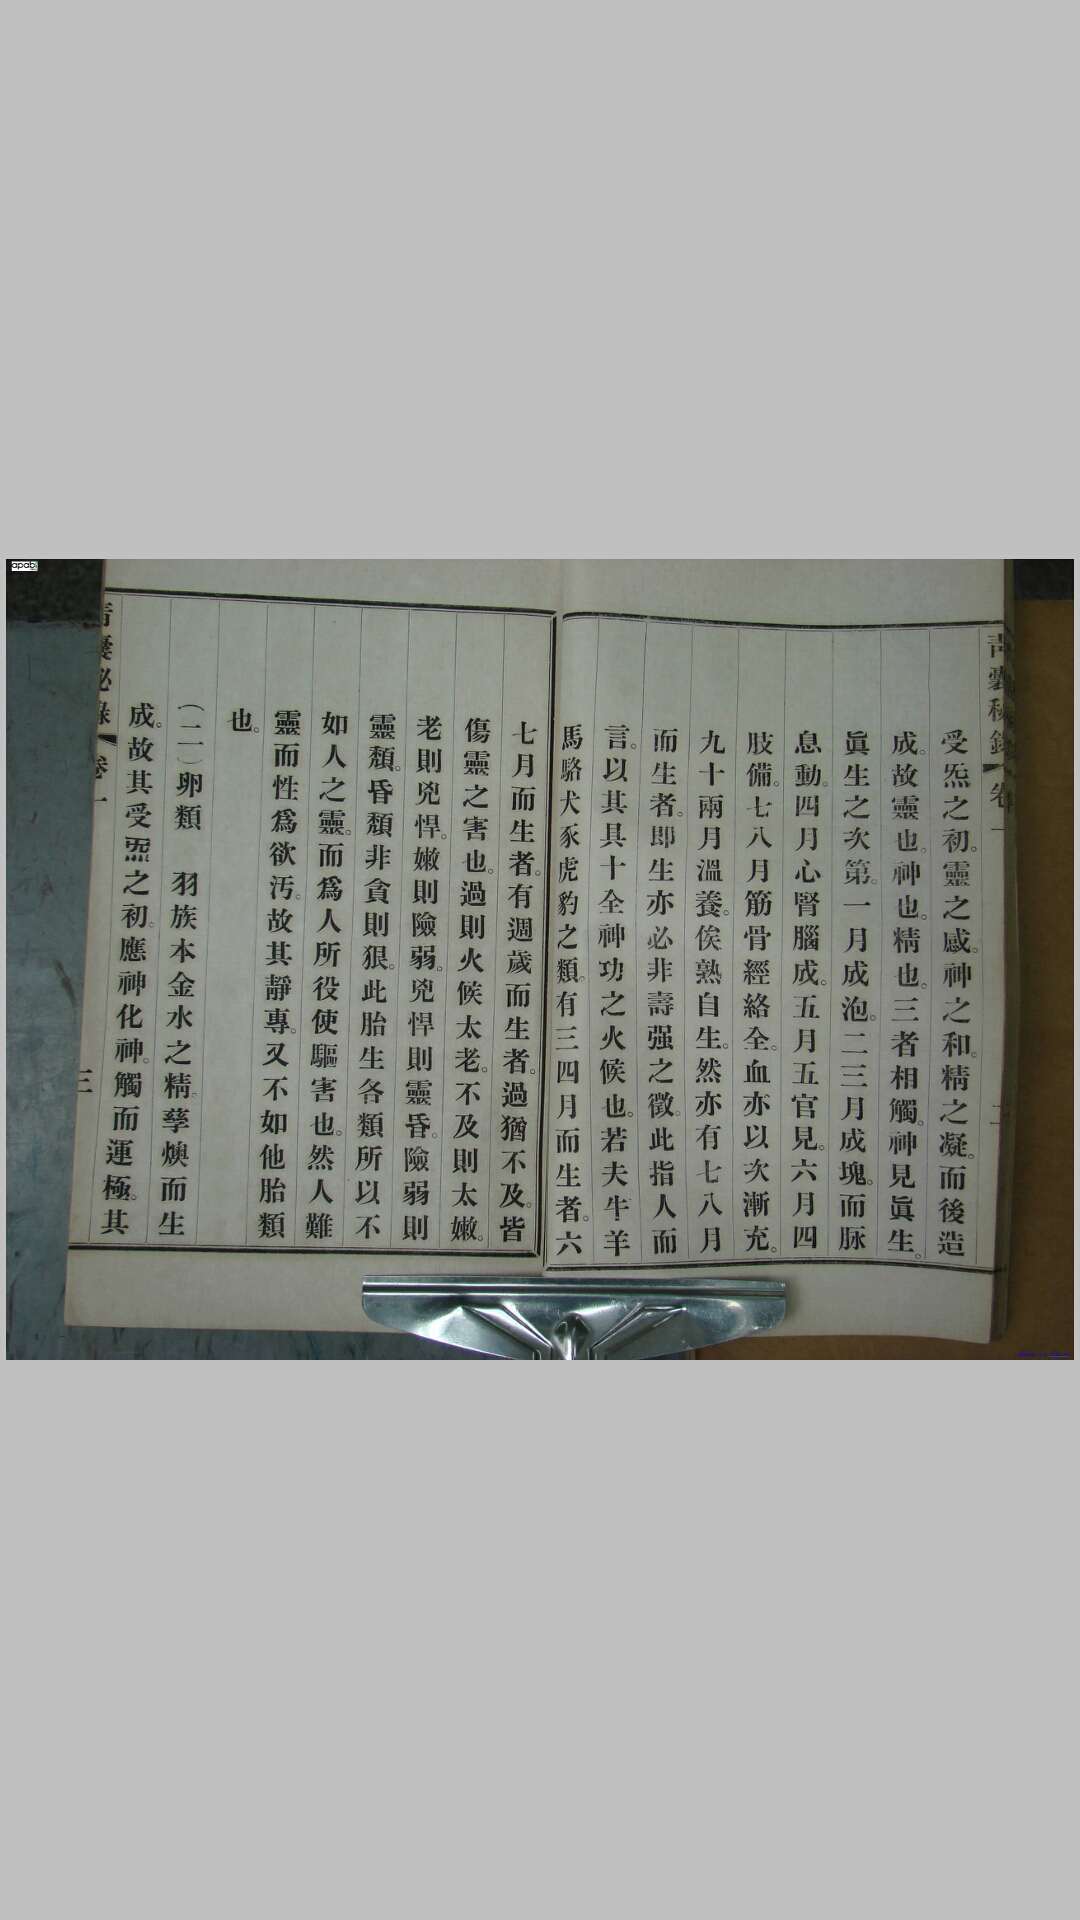 受炁之初。靈之感。神之和。精之凝。而後造
成。故靈也。神也。精也。三者相觸。神見眞生。
眞生之次第。一月成泡。二三月成塊。而脉
息動。四月心腎腦成。五月五官見。六月四
肢備。七八月筋骨經絡全。血亦以次漸充。
九十兩月溫養。俟熟自生。然亦有七八月
而生者。即生亦必非壽强之徵。此指人而
言。以其具十全神功之火候也。若夫牛羊
馬駱犬豕虎豹之類。有三四月而生者。六
七月而生者。有週歲而生者。過猶不及。皆
傷靈之害也。過則火候太老。不及則太嫩。
老則兇悍。嫩則險弱。兇悍則靈昏。險弱則
靈頹。昏頹非貪則狠。此胎生各類所以不
如人之靈。而爲人所役使驅害也。然人難
靈而性爲欲汚。故其靜專。又不如他胎類
也。
(二)卵類 羽族本金水之精。孳煥而生
成。故其受炁之初。應神化神。觸而運極。其
青囊秘錄 卷一
三
apabi